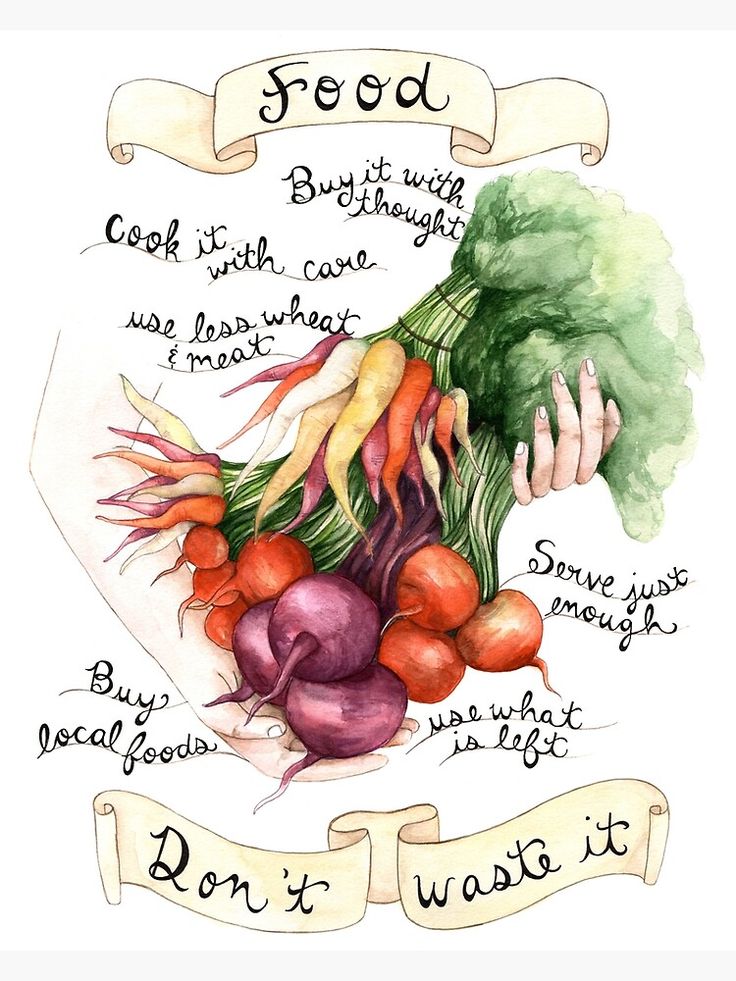 Food
Buy it with
thought
Cook it
with care
use less wheat
& meat
Serve just
enough
Buy
local foods
use what
is left
Don't waste it